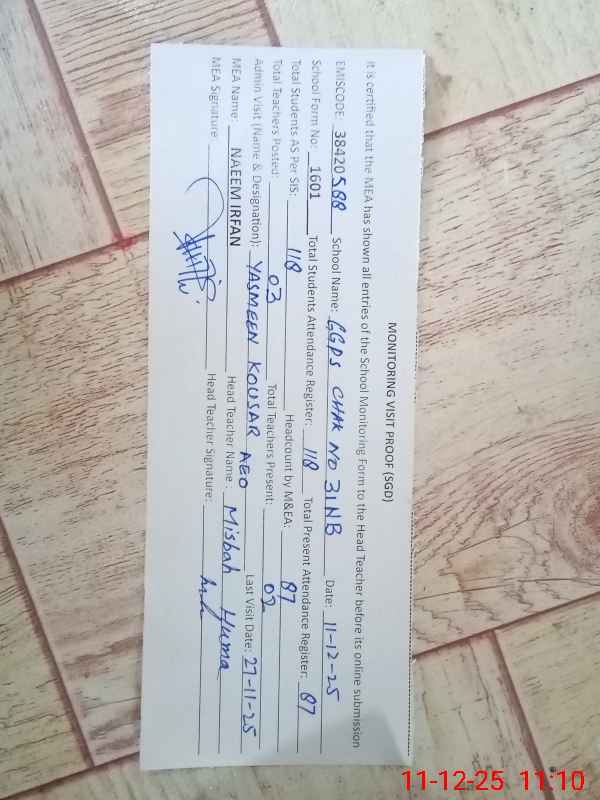 MONITORING VISIT PROOF (SGD)
It is certified that the MEA has shown all entries of the School Monitoring Form to the Head Teacher before its online submission
EMISCODE: 38420588 School Name: GGPS CHAK NO 31NB Date: 11-12-25
School Form No: 1601 Total Students Attendance Register: 118 Total Present Attendance Register: 87
Total Students AS Per SIS: 118 Headcount by M&EA: 87
Total Teachers Posted: 03 Total Teachers Present: 02
Admin Visit (Name & Designation): YASMEEN KOUSAR AEO Last Visit Date: 27-11-25
MEA Name: NAEEM IRFAN Head Teacher Name: Misbah Huma
MEA Signature Head Teacher Signature:
11-12-25 11:10